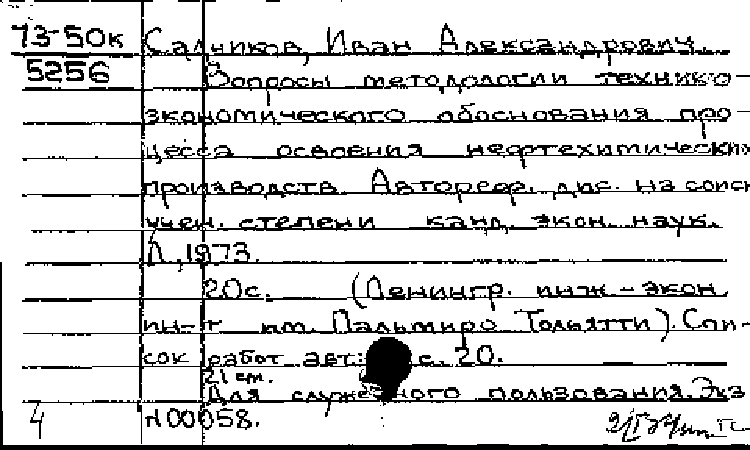 73-50к Садчиков, Иван Александрович.
5256 Вопросы методологии технико-
экономического обоснования про-
цесса освоения нефтехимических
производств. Автореф. дис. на соиск
учен. степени канд. экон. наук.
Л., 1973.
20с. (Ленингр. инж-экон
ин-т им. Пальмиро Тольятти). Спи-
сок работ авт.: с. 20.
21 см.
Для служебного пользования. Экз
4 N 00058.